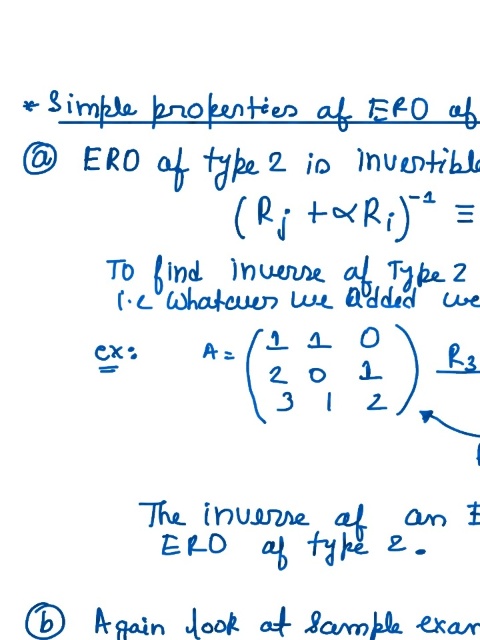 * Simple properties of ERO of
(a) ERO of type 2 is invertible
(Rj + αRi)⁻¹ ≡
To find inverse of Type 2
i.e whatever we added we
ex: A = (1 1 0 R3
2 0 1
3 1 2)
The inverse of an E
ERO of type 2.
(b) Again look at sample exam